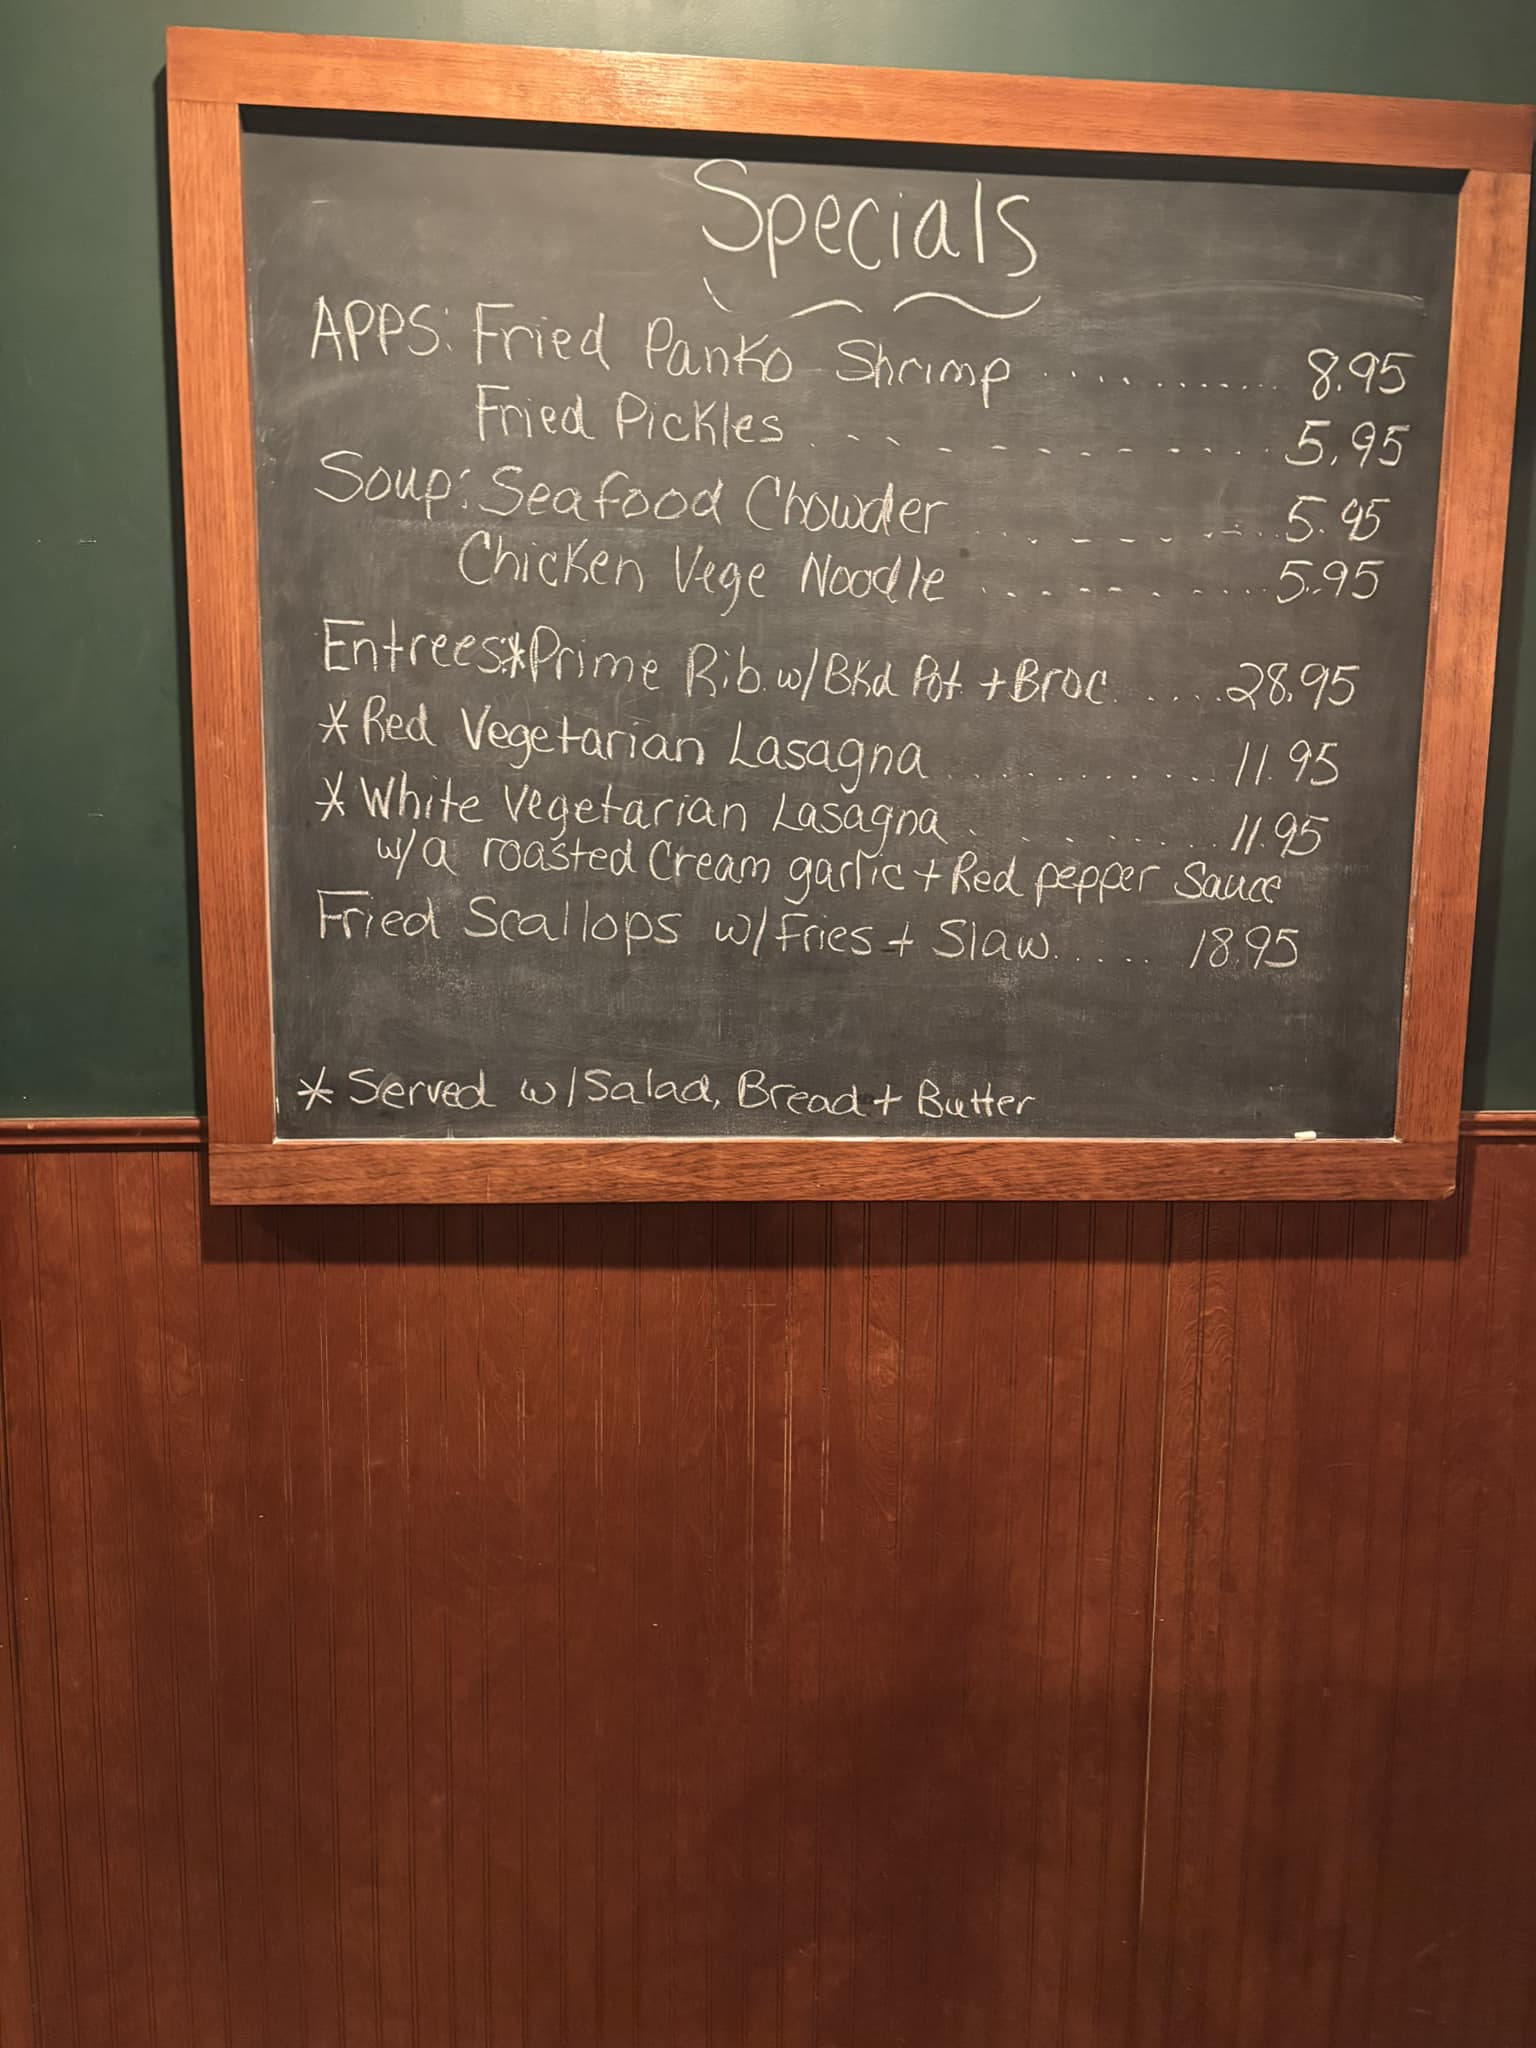 Specials
APPS: Fried Panko Shrimp ............ 8.95
Fried Pickles ............ 5.95
Soup: Seafood Chowder ............ 5.95
Chicken Vege Noodle ............ 5.95
Entrees: *Prime Rib w/Bkd Pot + Broc ..... 28.95
* Red Vegetarian Lasagna ............ 11.95
* White Vegetarian Lasagna ............ 11.95
w/a roasted Cream garlic + Red pepper Sauce
Fried Scallops w/Fries + Slaw ..... 18.95
* Served w/Salad, Bread + Butter